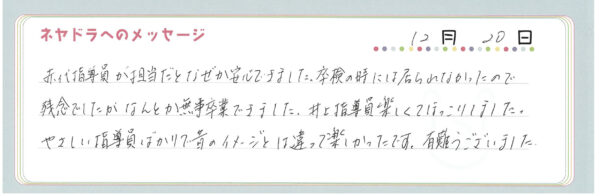 ネヤドラへのメッセージ
12月 20日
赤代指導員が担当だとなぜか安心できました。卒検の時には居られなかったので
残念でしたがなんとか無事卒業できました。井上指導員楽しくてほっこりしました。
やさしい指導員ばかりで昔のイメージとは違って楽しかったです。有難うございました